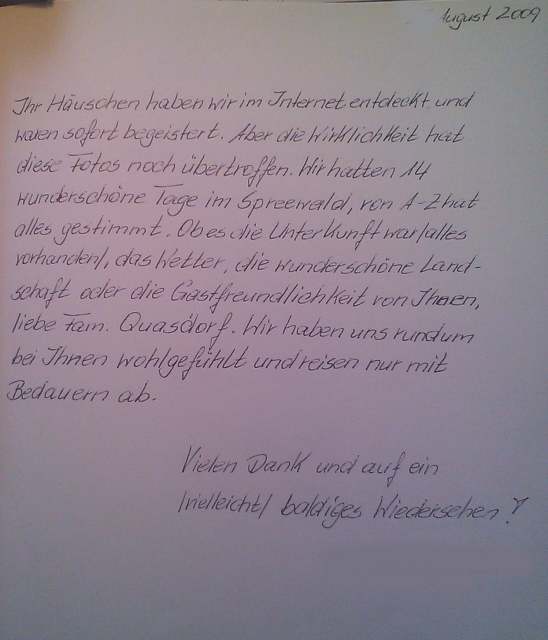 August 2009
Ihr Häuschen haben wir im Internet entdeckt und
waren sofort begeistert. Aber die Wirklichkeit hat
diese Fotos noch übertroffen. Wir hatten 14
wunderschöne Tage im Spreewald, von A-Z hat
alles gestimmt. Ob es die Unterkunft war /alles
vorhanden/, das Wetter, die wunderschöne Land-
schaft oder die Gastfreundlichkeit von Ihnen,
liebe Fam. Quasdorf. Wir haben uns rundum
bei Ihnen wohlgefühlt und reisen nur mit
Bedauern ab.
Vielen Dank und auf ein
/vielleicht/ baldiges Wiedersehen!